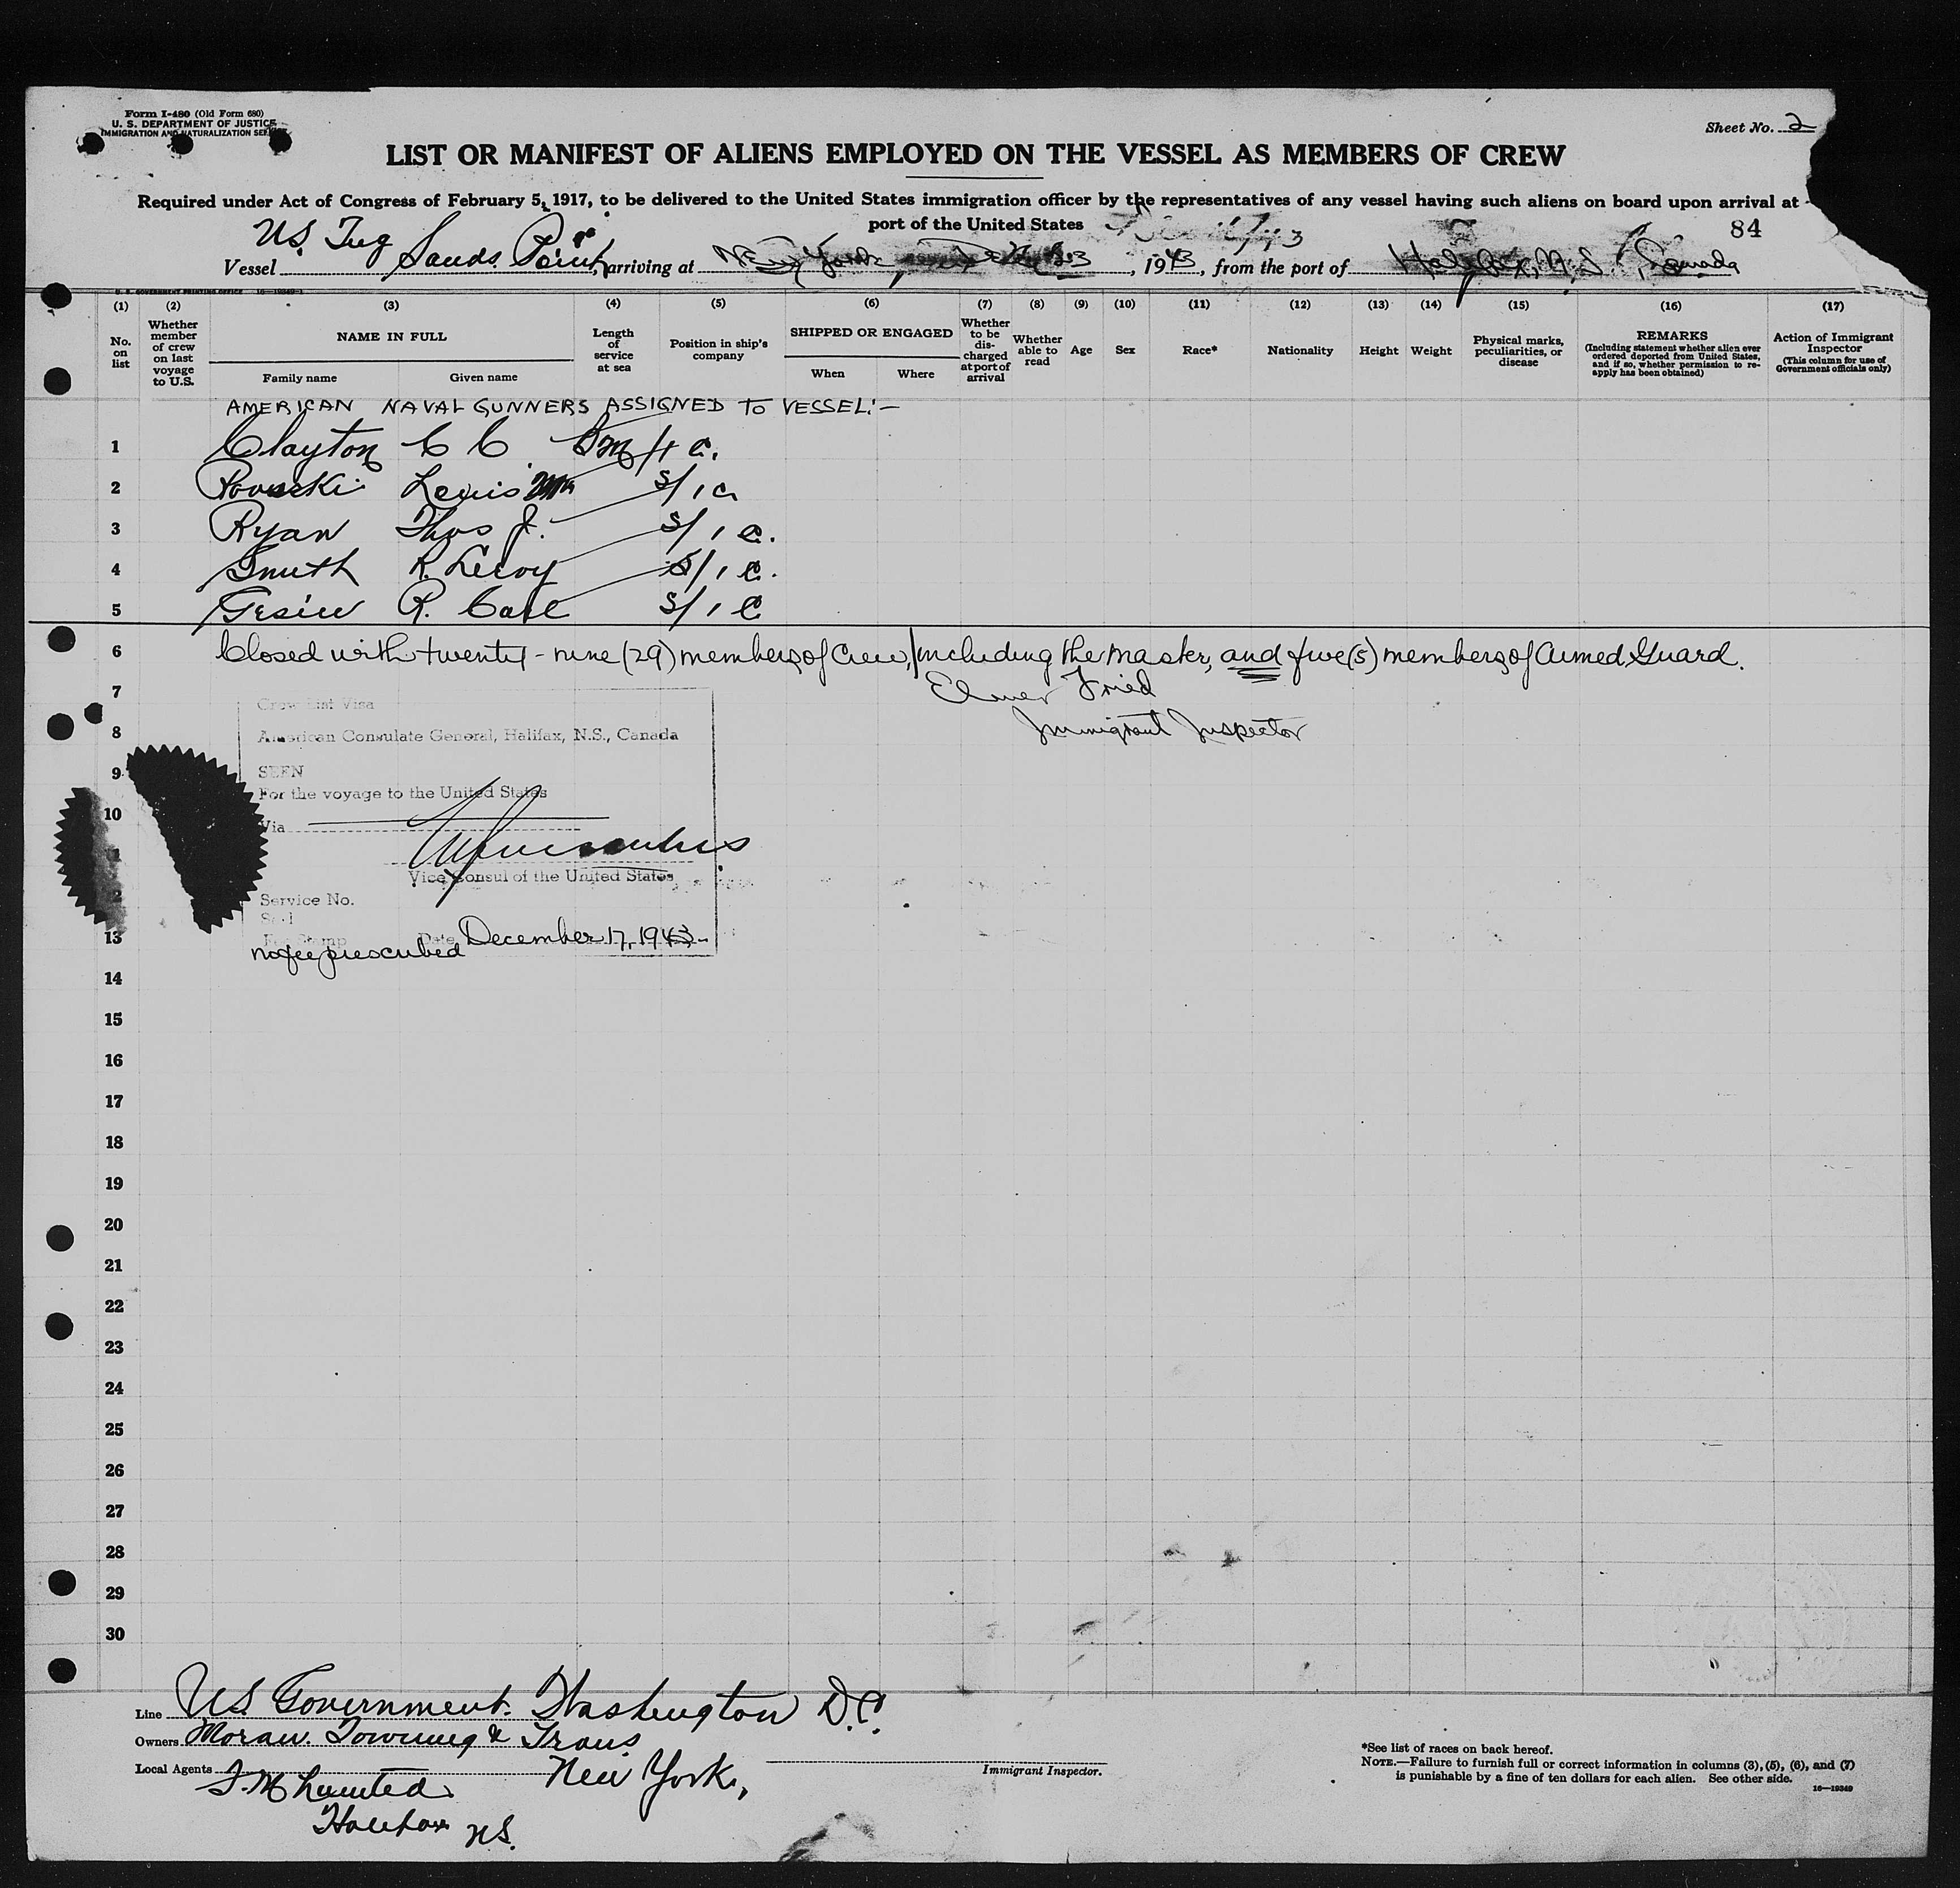 Form I-480 (Old Form 680)
U. S. DEPARTMENT OF JUSTICE
IMMIGRATION AND NATURALIZATION SERVICE
Sheet No. 2
LIST OR MANIFEST OF ALIENS EMPLOYED ON THE VESSEL AS MEMBERS OF CREW
Required under Act of Congress of February 5, 1917, to be delivered to the United States immigration officer by the representatives of any vessel having such aliens on board upon arrival at
port of the United States
84
Vessel U.S. Tug Sands Point, arriving at New York, 23, 1943, from the port of Halifax, N.S., Canada
U. S. GOVERNMENT PRINTING OFFICE 16—19349-1
(1) (2) (3) (4) (5) (6) (7) (8) (9) (10) (11) (12) (13) (14) (15) (16) (17)
No. on list
Whether member of crew on last voyage to U.S.
NAME IN FULL
Family name Given name
Length of service at sea
Position in ship's company
SHIPPED OR ENGAGED
When Where
Whether to be discharged at port of arrival
Whether able to read
Age
Sex
Race*
Nationality
Height
Weight
Physical marks, peculiarities, or disease
REMARKS
(Including statement whether alien ever ordered deported from United States, and if so, whether permission to reapply has been obtained)
Action of Immigrant Inspector
(This column for use of Government officials only)
AMERICAN NAVAL GUNNERS ASSIGNED TO VESSEL:—
1 Clayton C C
2 Louis S/1 C
3 Ryan Thos J. S/1 C.
4 Smith R. Leroy S/1 C.
5 R. Carl S/1 C
6 Closed with twenty-nine (29) members of Crew, including the master, and five (5) members of Armed Guard.
7 Elmer Fried
8 Immigrant Inspector
Crew List Visa
American Consulate General, Halifax, N.S., Canada
SEEN
For the voyage to the United States
Via
Vice Consul of the United States
Service No.
Seal
Fee Stamp Date December 17, 1943
no fee prescribed
9
10
11
12
13
14
15
16
17
18
19
20
21
22
23
24
25
26
27
28
29
30
Line U.S. Government. Washington D.C.
Owners Moran. Towing & Trans.
Local Agents New York,
Halifax N.S.
Immigrant Inspector.
*See list of races on back hereof.
NOTE.—Failure to furnish full or correct information in columns (3), (5), (6), and (7)
is punishable by a fine of ten dollars for each alien. See other side.
16—19349